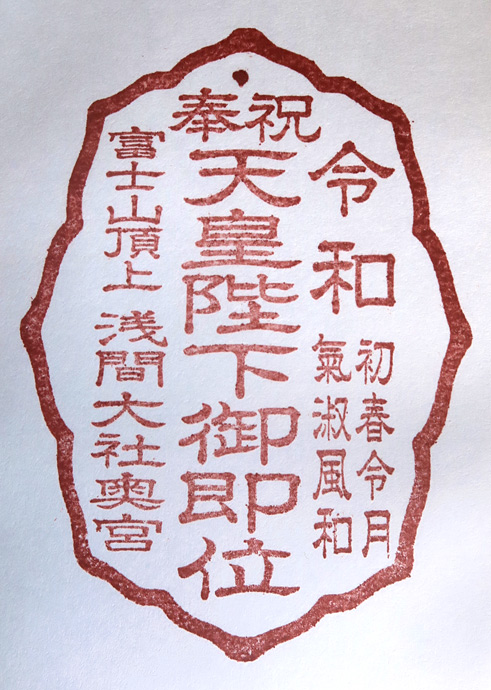 令和
初春令月
氣淑風和
奉祝
天皇陛下御即位
富士山頂上 浅間大社奥宮